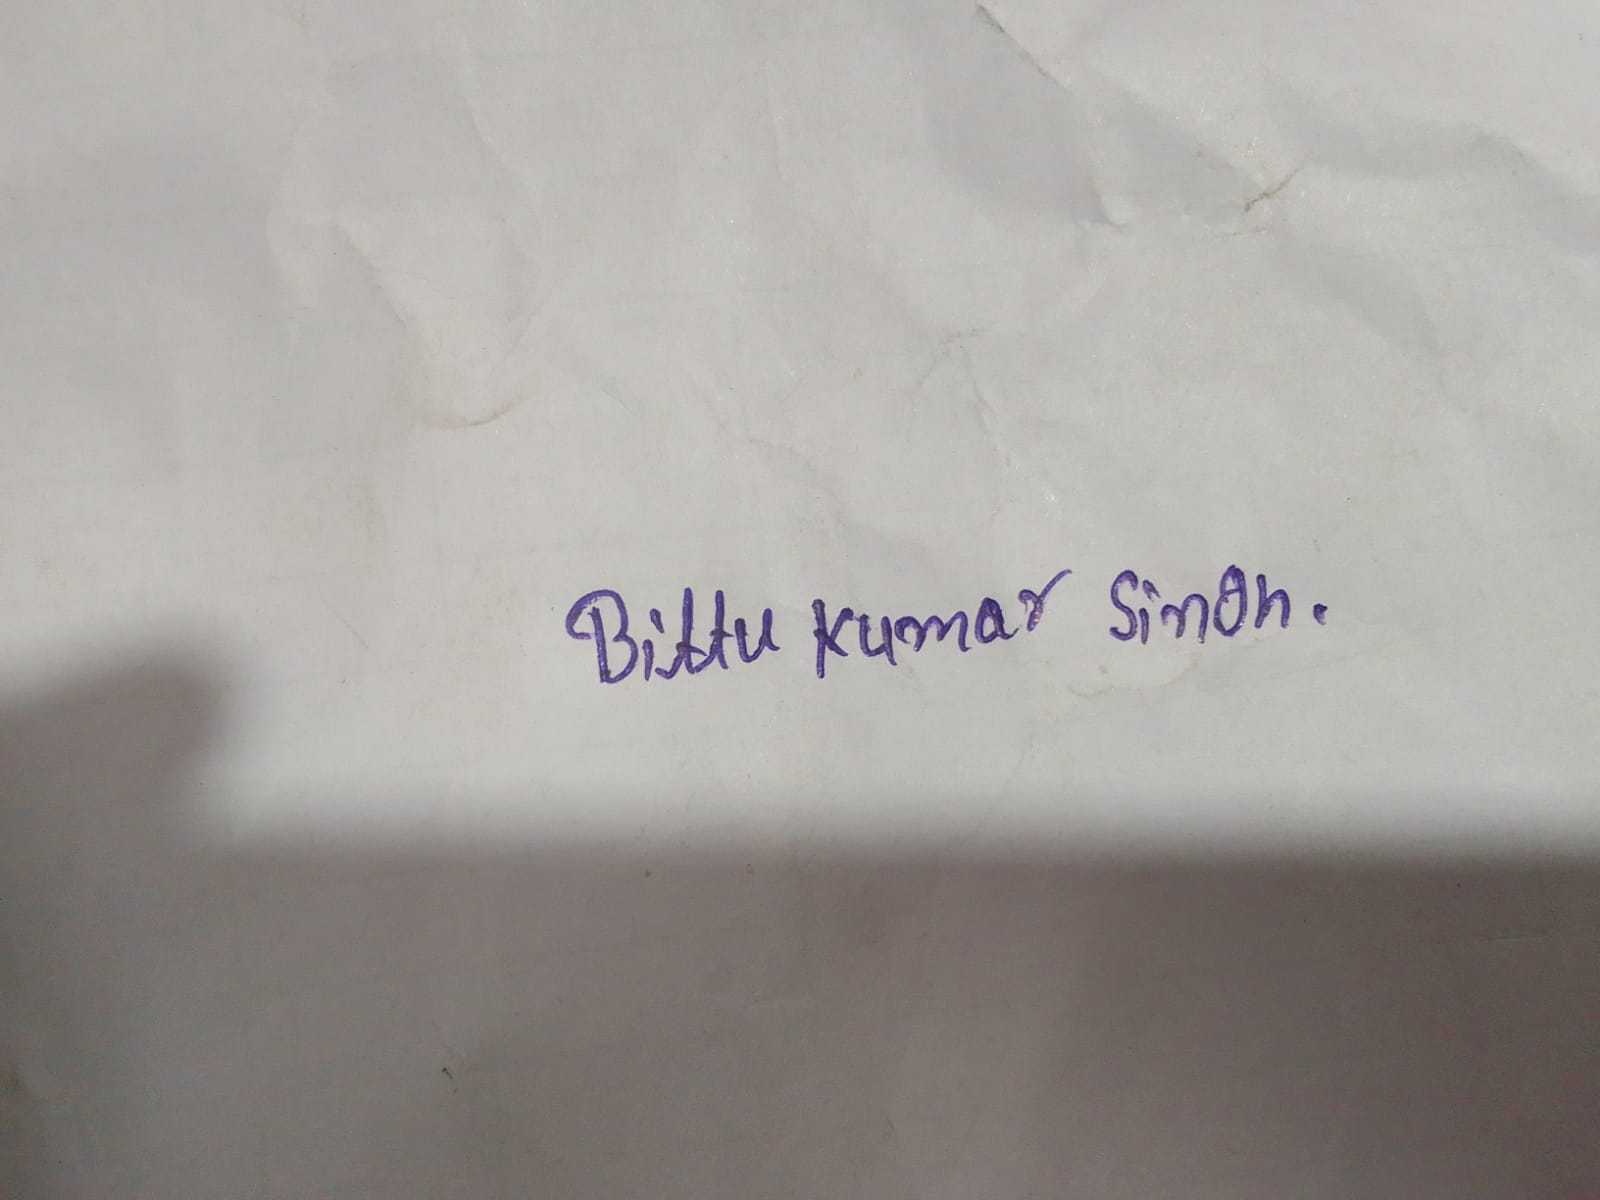 Bittu Kumar Singh.